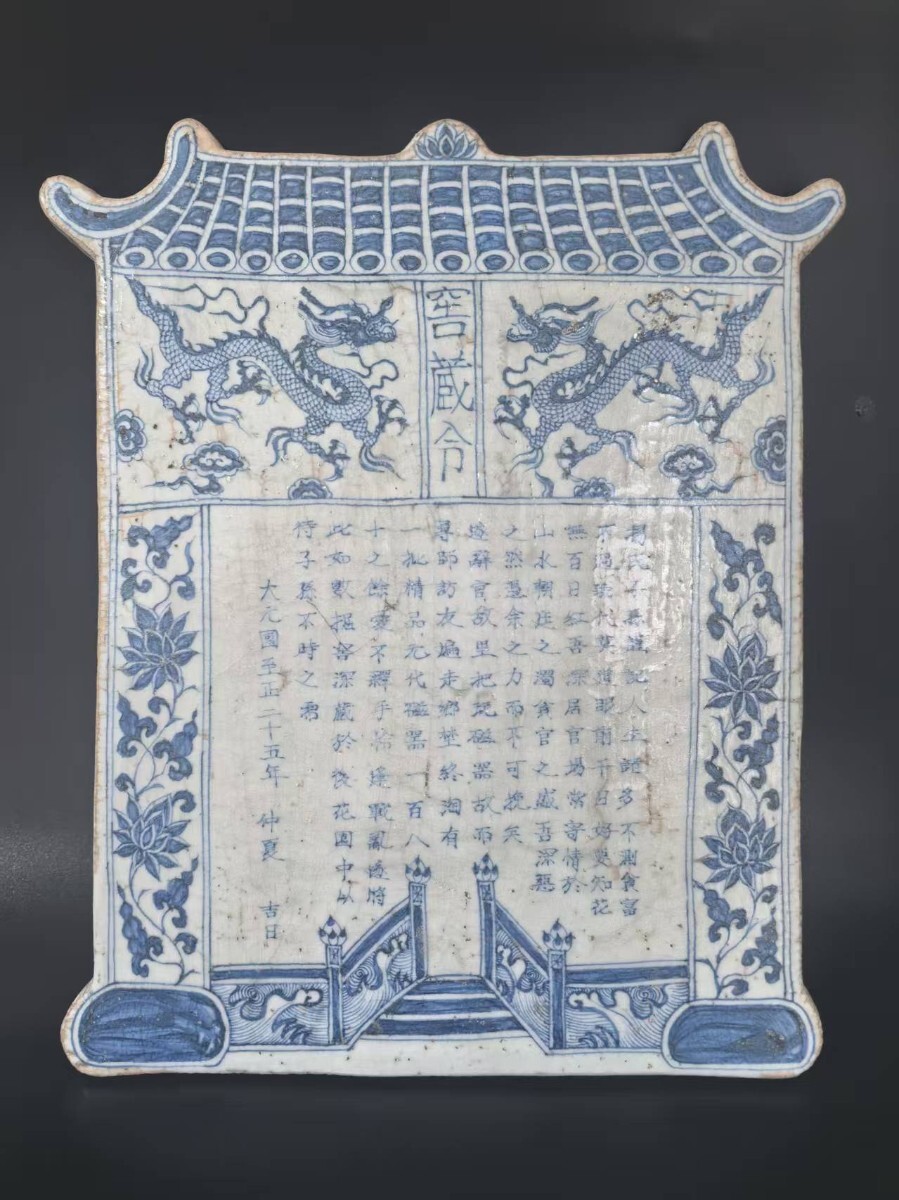 窖蔵令
氏子孫謹記人生諸多不測貪富
不過代莫道那開千日好更知花
無百日紅吾深居官場常寄情於
山水朝庄之濁貪官之盛吾深惡
之然盡余之力而不可挽矣
遂辭官故里把玩磁器故而
尋師訪友遍走鄉埜終淘有
一批精品元代磁器一百八
十之餘愛不釋手逢戰亂遂將
此如數摳窖深蔵於後花園中以
待子孫不時之需
大元國至正二十五年 仲夏 吉日